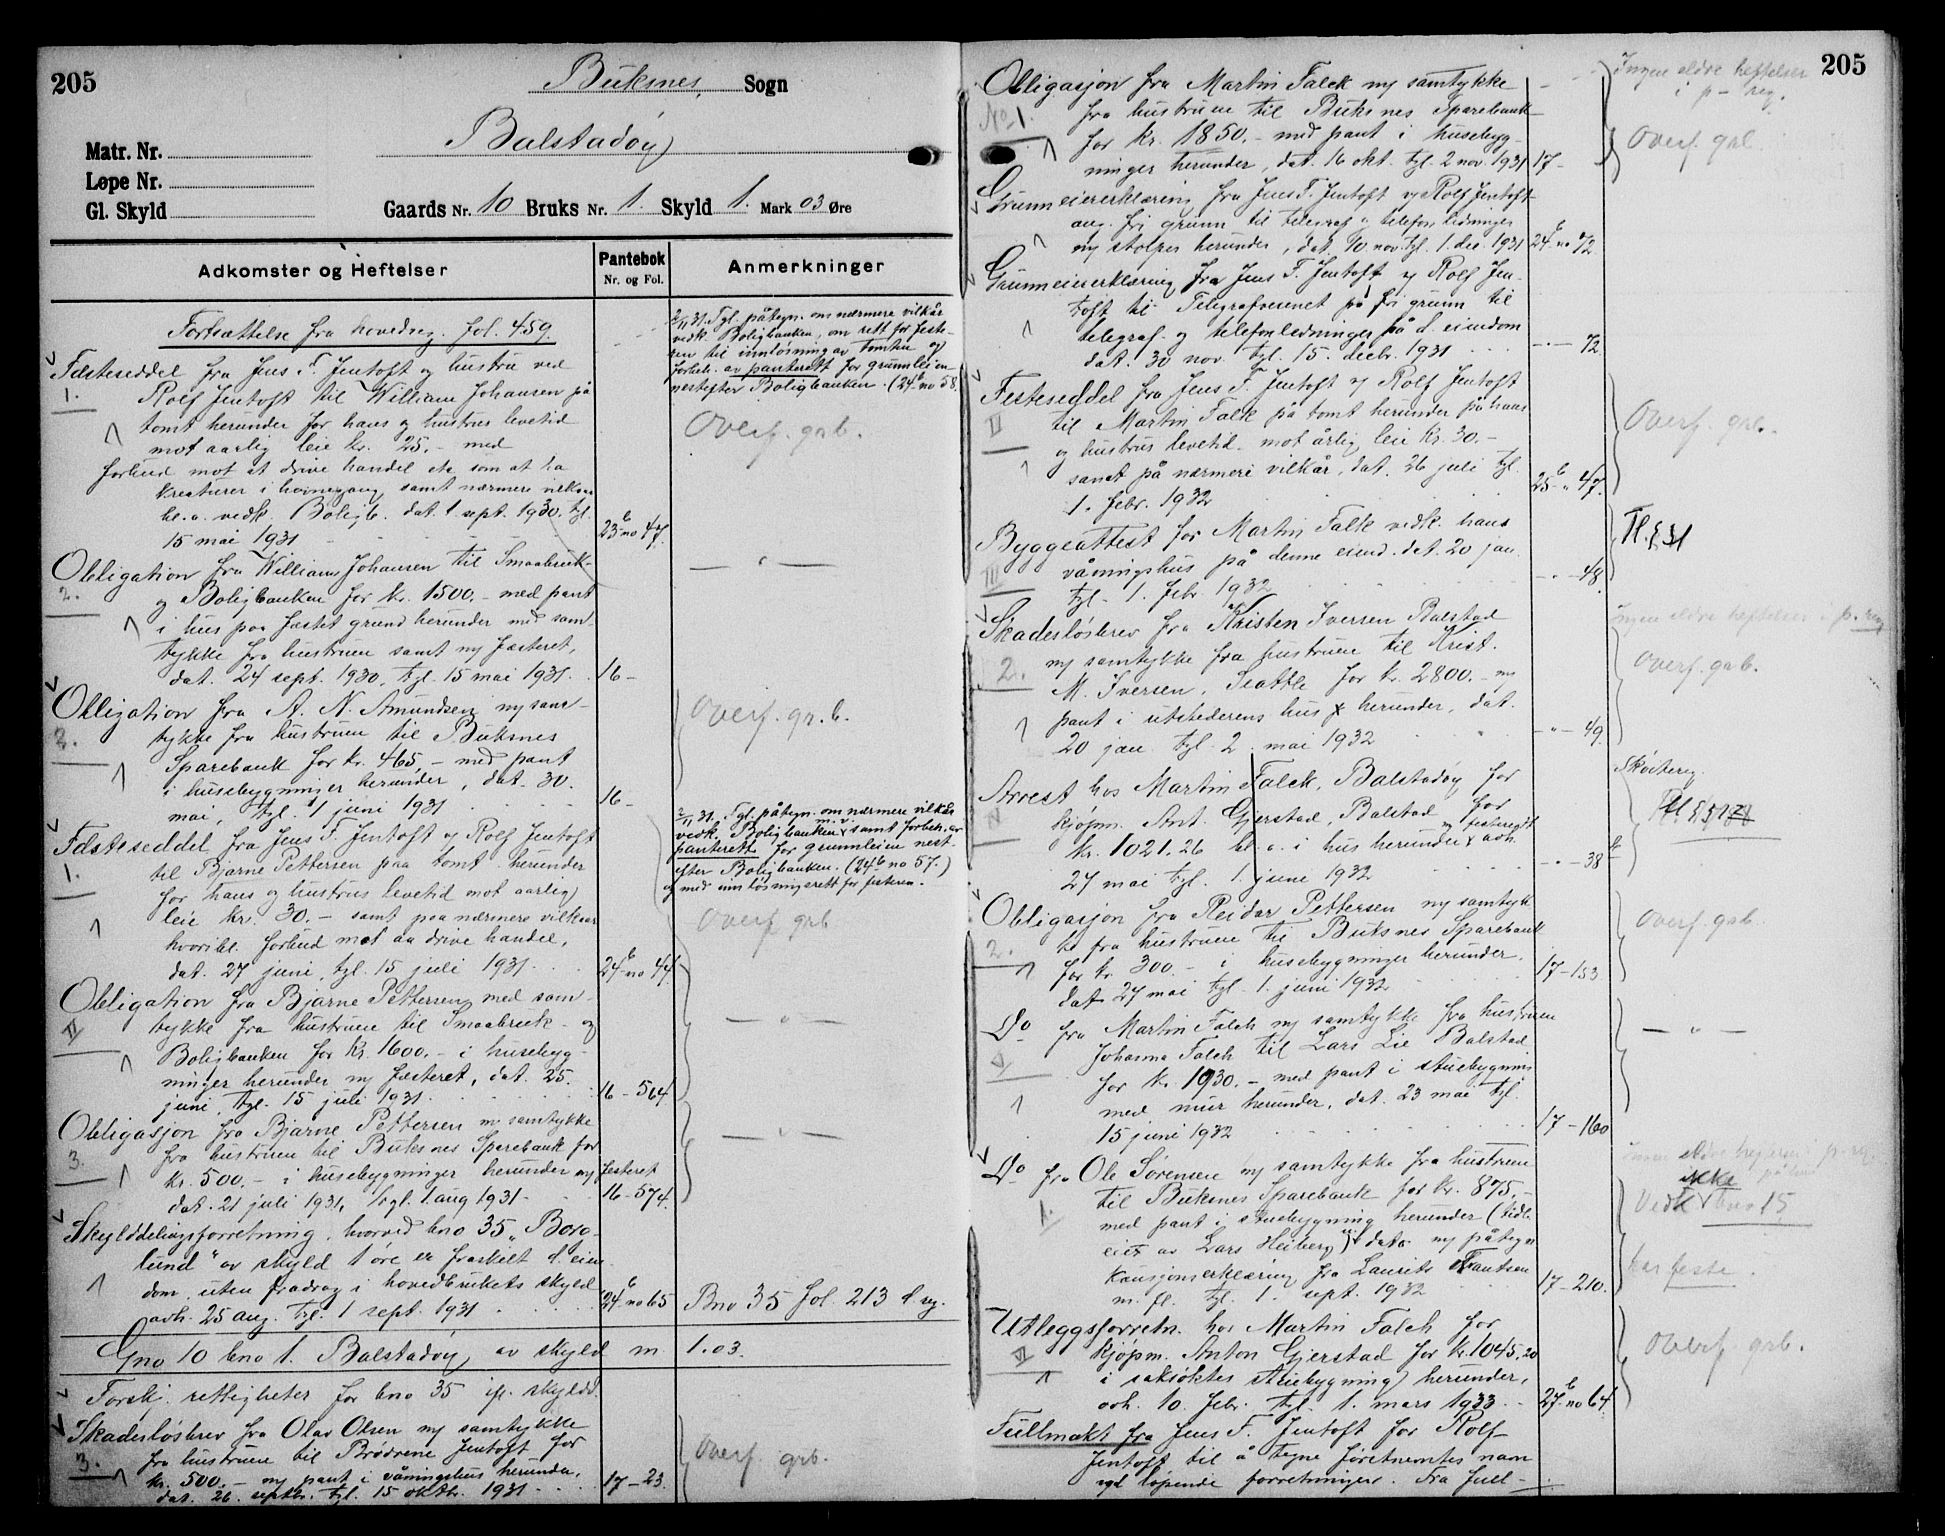 205
Buksnes Sogn
Balstadøy
Matr. Nr.
Løpe Nr.
Gl. Skyld
Gaards Nr. 10 Bruks Nr. 1. Skyld 1. Mark 03 Øre
Adkomster og Heftelser
Pantebok
Nr. og Fol.
Anmerkninger
Fortsættelse fra hovedreg. fol. 459.
Fæsteseddel fra Jens F. Jentoft og hustru ved
1.
Rolf Jentoft til William Johansen på
tomt herunder for hans og hustrus levetid
mot aarlig leie kr. 25,- med
forbud mot at drive handel etc som at ha
kreaturer i havnegang samt nærmere vilkaar
bl.a. vedk. Boligb. dat. 1 sept. 1930. tgl.
15 mai 1931
23 b no 47.
2/11 31. Tgl. påtegn. om nærmere vilkår
vedk. Boligbanken, om rett for feste-
ren til innløsning av tomten og
forbeh. av panterett for grunnleien
nestefter Boligbanken. (24 b no 58.
Overf. grb.
Obligation fra William Johansen til Smaabruk-
2.
og Boligbanken for kr. 1500.- med pant
i hus paa fæstet grund herunder med sam-
tykke fra hustruen samt m/ fæsteret,
dat. 24 sept. 1930, tgl. 15 mai 1931.
16 -
— " —
Obligation fra A. N. Amundsen m/ sam-
2.
tykke fra hustruen til Buksnes
Sparebank for kr. 465,- med pant
i husebygninger herunder, dat. 30.
mai, tgl. 1 juni 1931
16 -
Overf. gr.b.
Fæsteseddel fra Jens F. Jentoft og Rolf Jentoft
1.
til Bjarne Pettersen paa tomt herunder
for hans og hustrus levetid mot aarlig
leie kr. 30.- samt paa nærmere vilkaar
hvoribl. forbud mot aa drive handel,
dat. 27 juni, tgl. 15 juli 1931
24 b no 44.
2/11 31. Tgl. påtegn. om nærmere vilkår
vedk. Boligbanken m.v. samt forbeh. av
panterett for grunnleien nest-
efter Boligbanken. (24 b no 57.)
og med innløsningsrett for festeren.
Overf grb
Obligation fra Bjarne Pettersen med sam-
II
tykke fra hustruen til Smaabruk- og
Boligbanken for kr. 1600.- i husebyg-
ninger herunder m/ fæsteret, dat. 25.
juni, tgl. 15 juli 1931
16 - 564.
— " —
Obligasjon fra Bjarne Pettersen m/ samtykke
3.
fra hustruen til Buksnes Sparebank for
kr. 500.- i husebygninger herunder m/ festeret
dat. 21 juli 1931, tgl. 1. aug 1931
16 - 574.
— " —
Skylddelingsforretning, hvorved bno 35 „Boro-
lund" av skyld 1 øre er fraskilt d. eien-
dom, uten fradrag i hovedbrukets skyld
avh. 25 aug. tgl. 1 sept. 1931
24 b no 65
Bno 35 fol. 213 d. reg.
Gno 10 bno 1. Balstadøy av skyld m 1.03.
Forskj. rettigheter for bno 35 ifl. skyldd.
Skadesløsbrev fra Olav Olsen m/ samtykke
3.
fra hustruen til Brødrene Jentoft for
kr. 500.- m/ pant i våningshus herunder,
dat. 26. septbr. tgl. 15 oktbr. 1931
17 - 23.
Overf. grb.
205
Obligasjon fra Martin Falck m/ samtykke
No 1.
fra hustruen til Buksnes Sparebank
for kr. 1850.- med pant i husebyg-
ninger herunder, dat. 16 okt. tgl. 2 nov. 1931
17 -
Ingen eldre heftelser
i p-reg.
Overf. grb.
Grunneiererklæring fra Jens F. Jentoft og Rolf Jentoft
ang. fri grunn til telegraf og telefonledninger
m/ stolper herunder, dat. 10 nov. tgl. 1. des. 1931
24 b no 72.
Grunneiererklæring fra Jens F. Jentoft og Rolf Jen-
toft til Telegrafvesenet på fri grunn til
telegraf- og telefonledninger på d. eiendom
dat. 30 nov. tgl. 15. decbr. 1931
— " — 72
Festeseddel fra Jens F. Jentoft og Rolf Jentoft
II
til Martin Falk på tomt herunder på hans
og hustrus levetid mot årlig leie kr. 30.-
samt på nærmere vilkår, dat. 26 juli tgl.
1. febr. 1932
25 b " 47.
Overf. grb.
Byggeattest for Martin Falk vedk. hans
III
våningshus på denne eiend. dat. 20 jan.
tgl. 1. febr. 1932
— " — 48.
Tl. § 31
Skadesløsbrev fra Kristen Iversen Balstad
2.
m/ samtykke fra hustruen til Krist.
M. Iversen, Seattle for kr. 2800.- m/
pant i utstederens hus herunder, dat.
20 jan. tgl. 2. mai 1932
— " — 49.
Ingen eldre heftelser i p.reg
Overf. grb.
Arrest hos Martin Falck, Balstadøy for
IV
kjøpm. Ant. Gjerstad, Balstad for
kr. 1021.26 bl.a. i hus herunder m/ festerett avh.
27 mai tgl. 1. june 1932
— " — 38
Skøitereg.
Obligasjon fra Reidar Pettersen m/ samtyk-
2.
ke fra hustruen til Buksnes Sparebank
for kr. 300.- i husebygninger herunder,
dat 27 mai tgl. 1. juni 1932
17 - 153
Overf. grb.
Do fra Martin Falch m/ samtykke fra hustruen
V
Johanna Falch til Lars Lie Balstad
for kr. 1930.- med pant i stuebygning
med mur herunder, dat. 23 mai tgl.
15 juni 1932
17 - 160
— " —
Do fra Ole Sørensen m/ samtykke fra hustruen
1.
til Buksnes Sparebank for kr. 875.-
med pant i stuebygning herunder (tidl.
eiet av Lars Heiberg) dato m/ påtegn
kausjonserklæring fra Laurits Frantsen
m. fl. tgl. 1. sept. 1932
17 - 210.
Ingen eldre heftelser i p-reg.
ikke
Vedk bno 15
har feste.
Utleggsforretn. hos Martin Falch for
VI
kjøpm. Anton Gjerstad for kr. 1045,20
i saksøktes stuebygning herunder,
avh. 10. febr. tgl. 1. mars 1933
27 b no 64.
Overf. grb.
Fullmakt fra Jens F. Jentoft for Rolf
Jentoft til å tegne førstnevntes navn
ved løpende forretninger. Fra full-